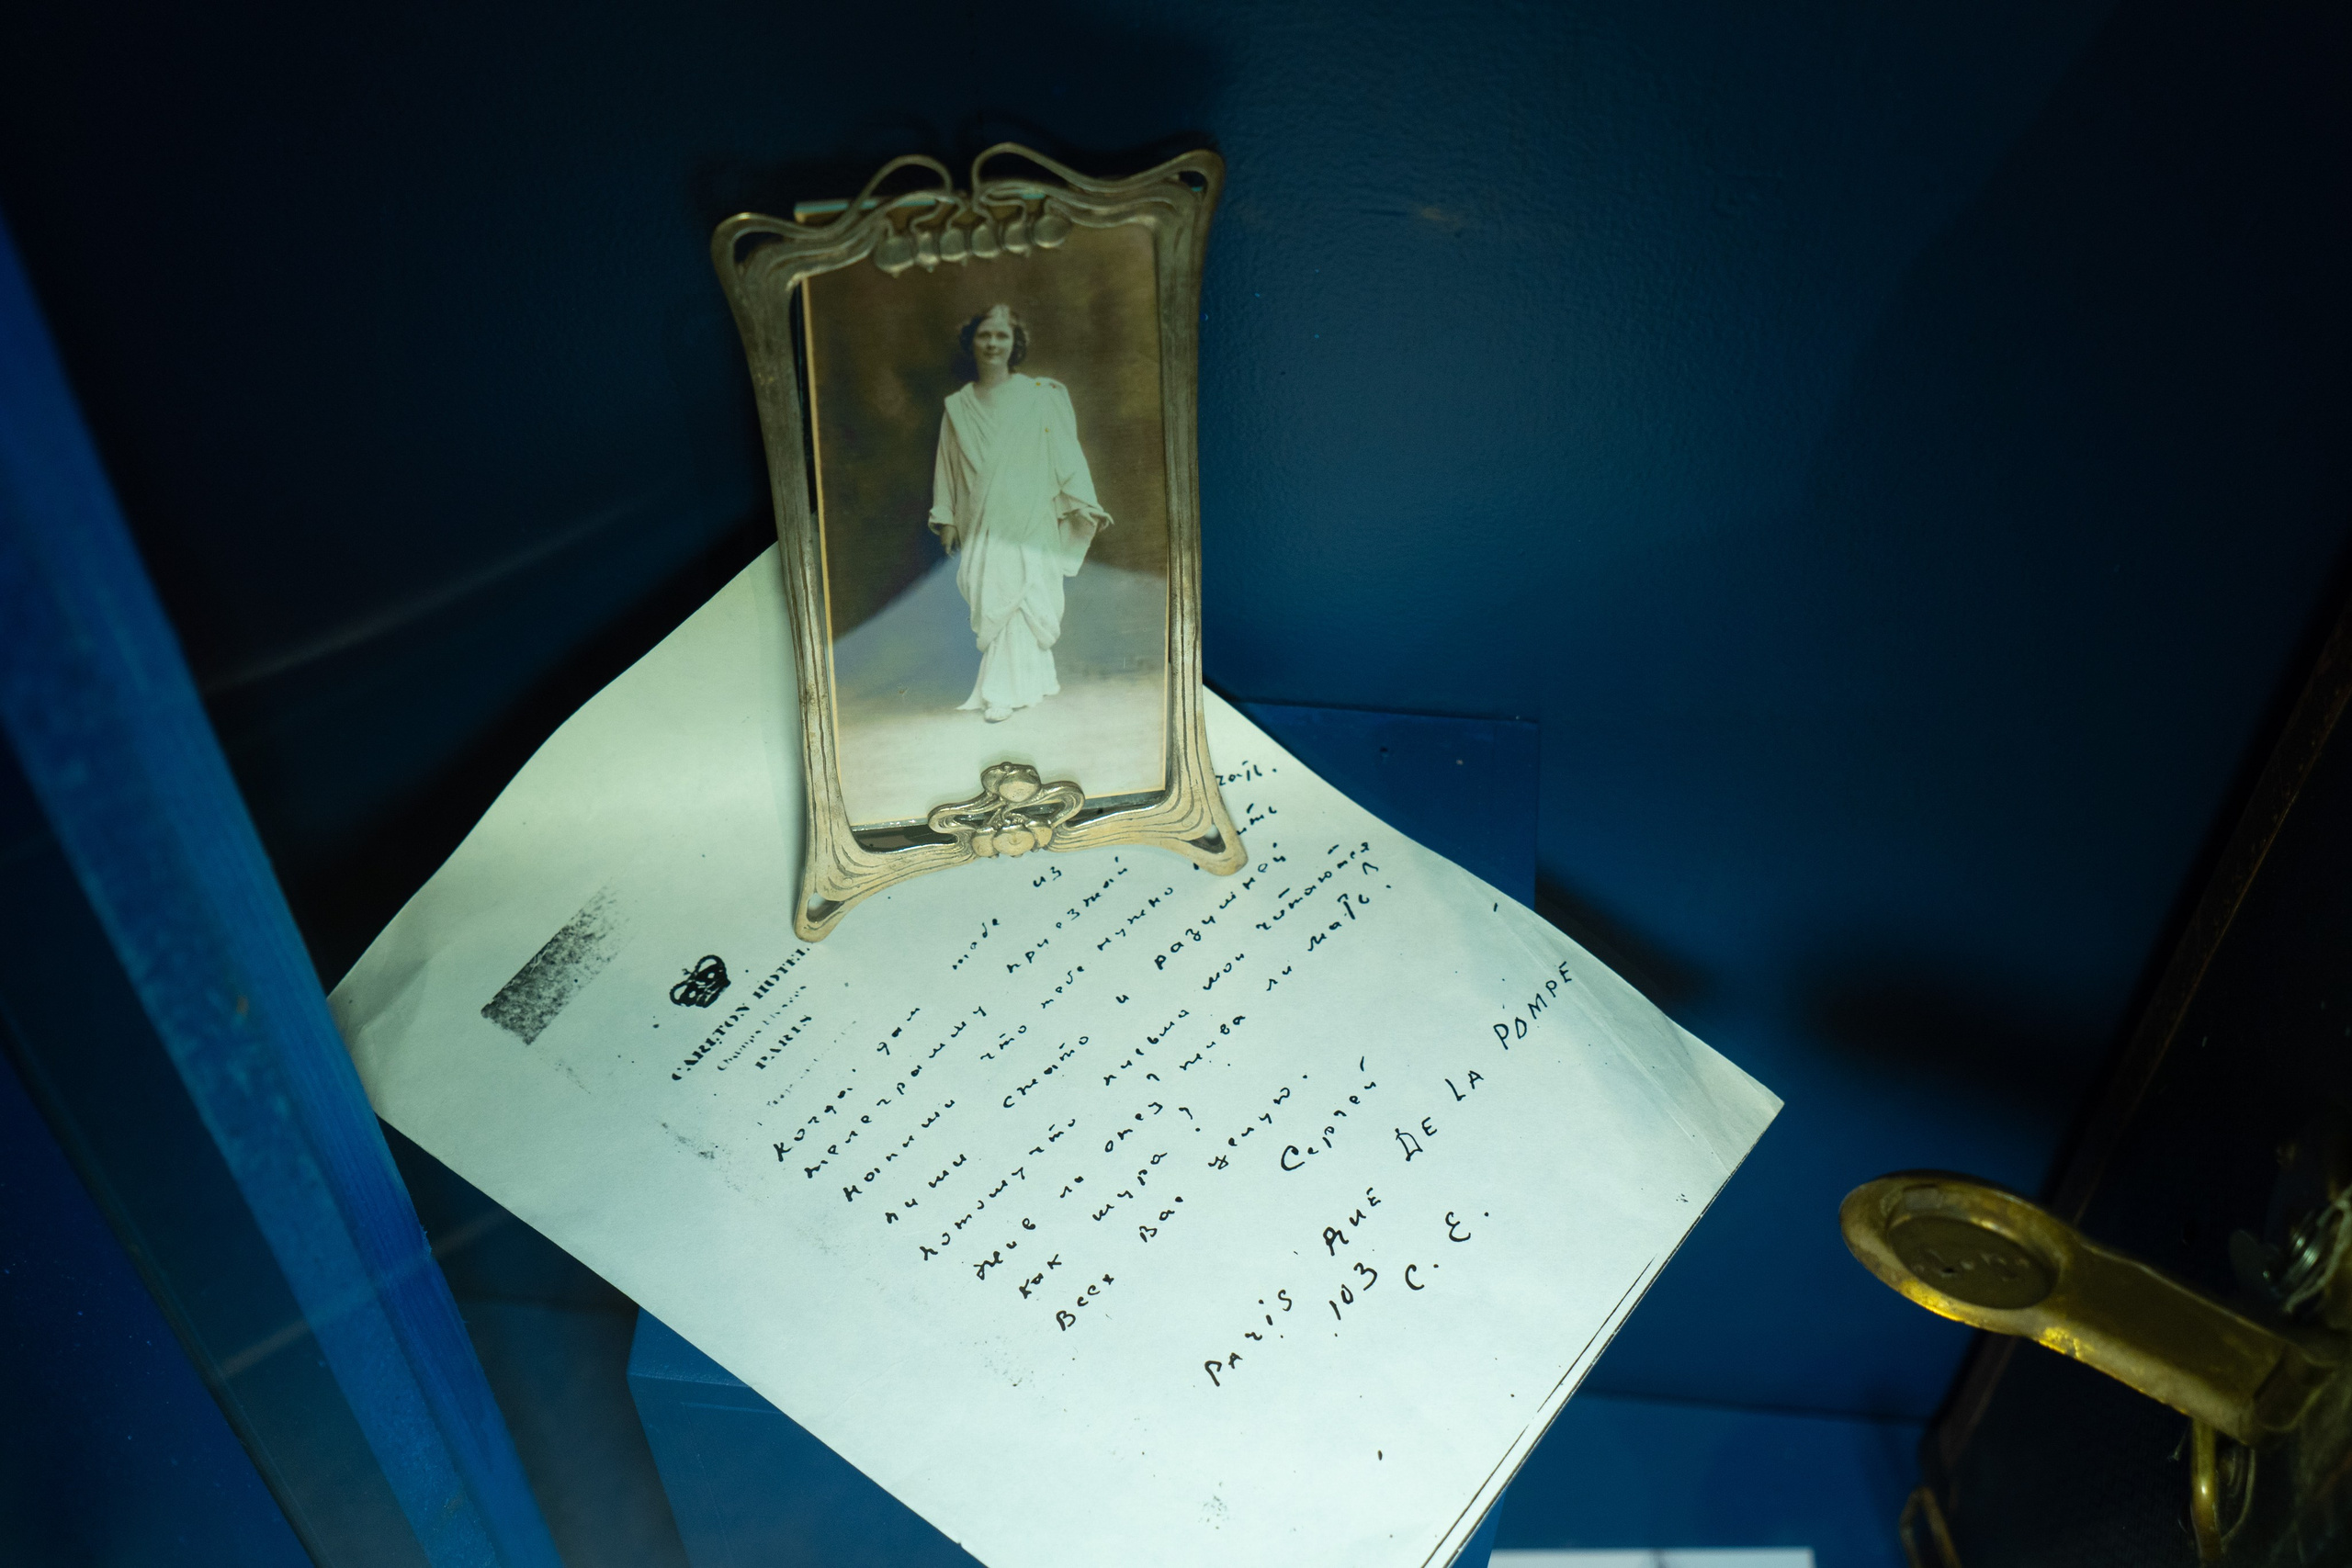 CARLTON HOTEL
Champs Elysées
PARIS
Когда дам тебе из
телеграмму приезжай
напиши что тебе нужно
пиши сжато и разумней
потому что письма мои читаются
Жив ли отец, жива ли мать
как Шура?
Всех Вас целую.
Сергей
Paris RUE DE LA POMPE
103
С. Е.